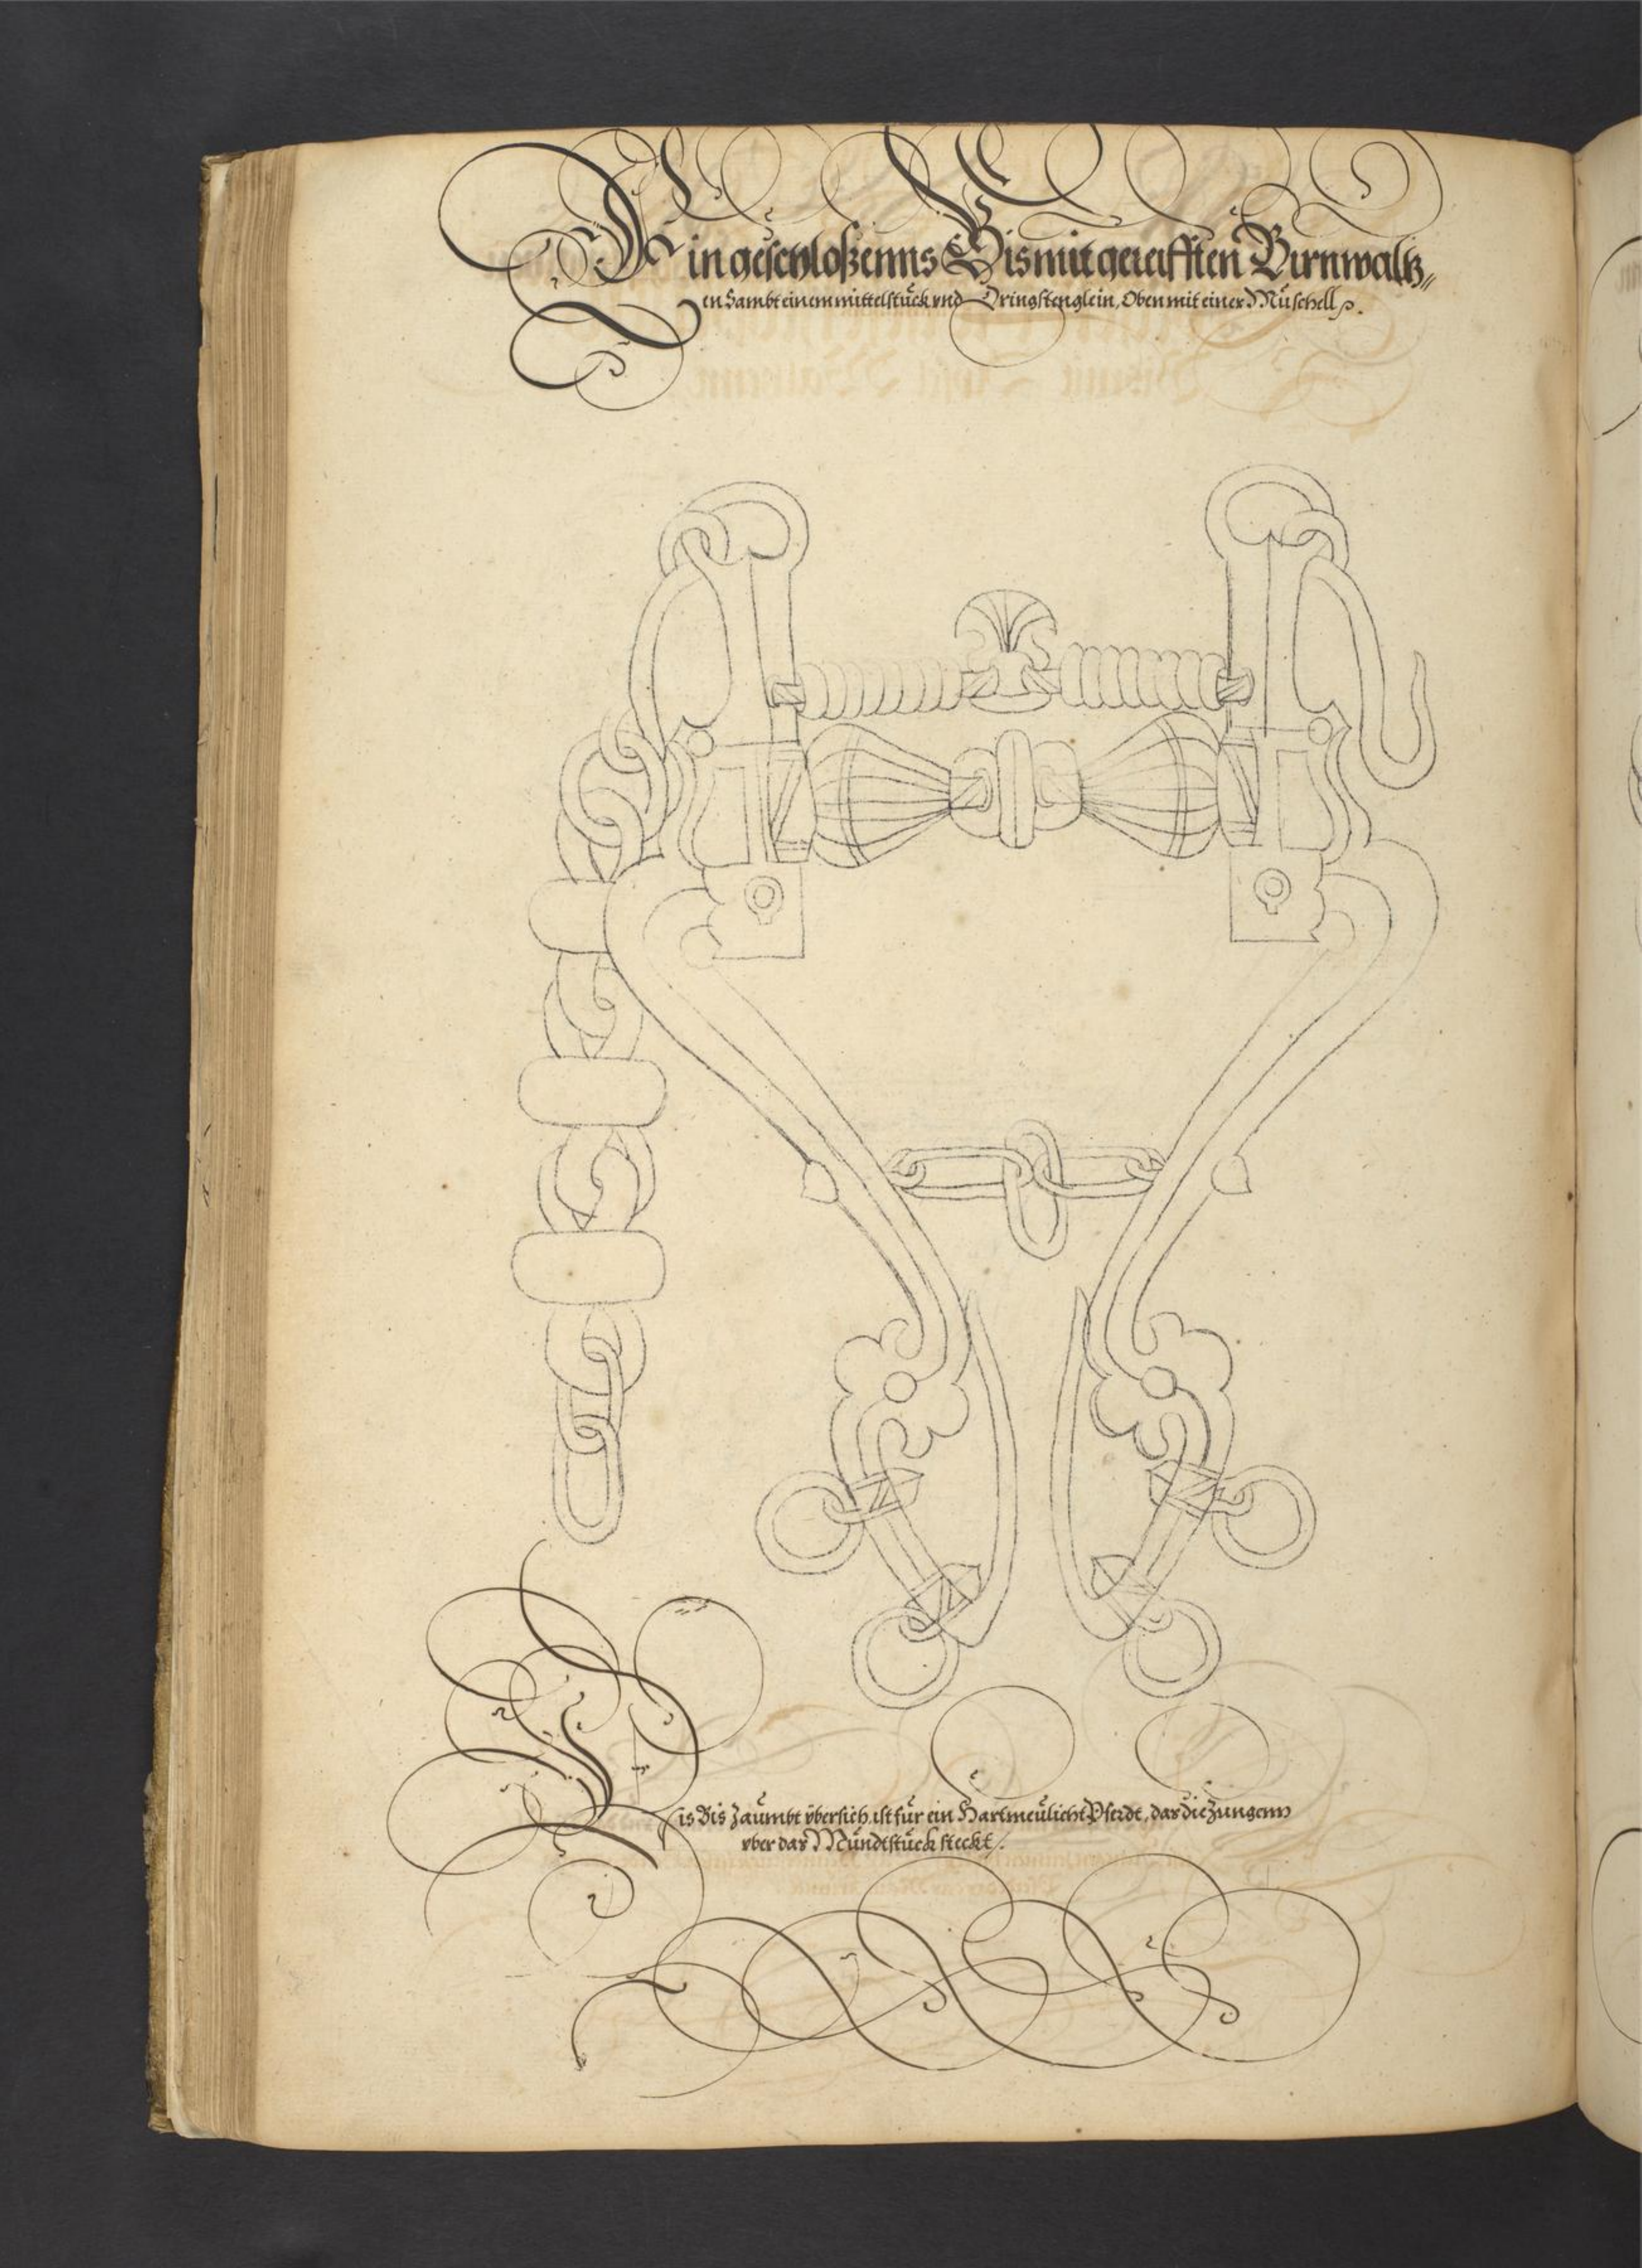 Ein geschloßenns Bis mit gereifften Birnwaltz„
en Sambt einem mittelstück vnd Dringstenglein, Oben mit einer Müschell.
Dis Bis zaumbt vbersich, ist für ein Hartmeülicht Pferdt, das die Zungenn
vber das Mündtstück steckt.